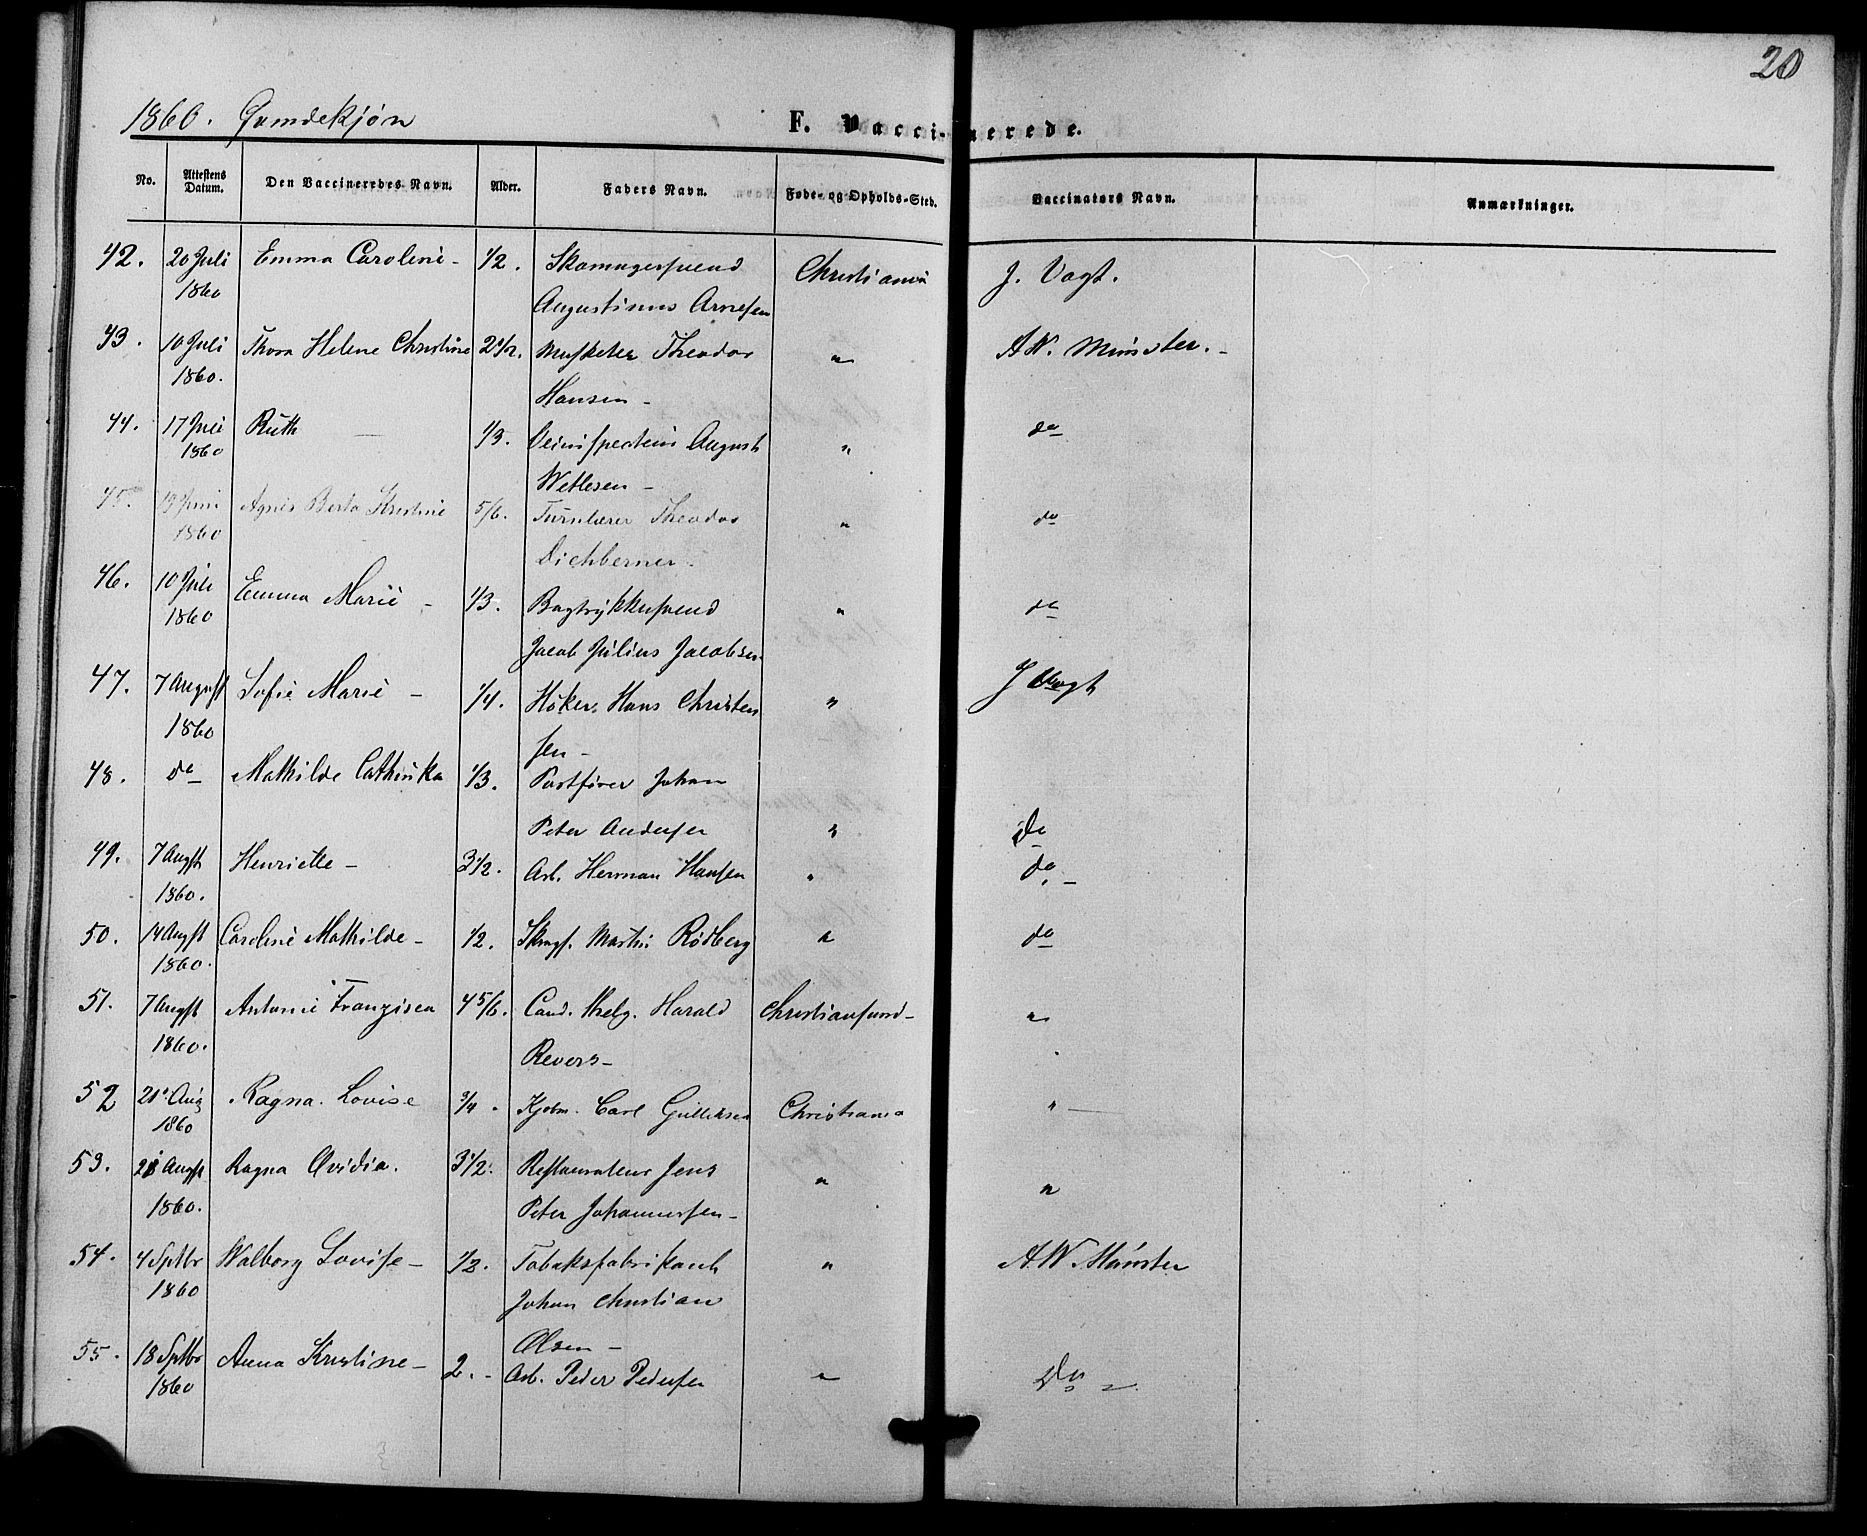 20
1860. Qvindekjøn
F. Vaccinerede.
No. Attestens Datum. Den Vaccineredes Navn. Alder. Faders Navn. Føde- og Opholds-Sted. Vaccinators Navn. Anmærkninger.
42. 20 Juli Emma Caroline - 1/2. Skomagersvend Christiania J. Vogt.
1860 Augustinus Arnesen
43. 10 Juli Thora Helene Christine 2 1/2. Musketer Theodor " A W. Münster. -
1860. Hansen -
44. 17 Juli Ruth 1/3. Veiinspecteur August " do
1860 Wetlesen -
45. 19 Juni Agnes Berta Kristine 5/6. Turnlærer Theodor " do
1860 Dichberner.
46. 10 Juli Emma Marie - 1/3. Bogtrykkersvend " do
1860 Jacob Julius Jacobsen
47. 7 August Sofie Marie - 1/4. Høker Hans Christen " J Vogt
1860 sen -
48. do Mathilde Cathinka 1/3. Postfører Johan
Peter Andersen " Do
49. 7 Augst Henriette - 3 1/2. Arb. Herman Hansen " do. -
1860.
50. 14 Augst Caroline Mathilde - 1/2. Skmgs. Martin Rødberg " do
1860.
51. 7 Augst Antonie Franzisca 4 5/6. Cand. theolg. Harald Christiansund - "
1860. Revers -
52 21 Aug Ragna Lovise 3/4. Kjøbm. Carl Gulliksen Christiania "
1860
53. 21 Augst Ragna Ovidia. 3 1/2. Restaurateur Jens " "
1860. Peter Johannessen -
54. 4 Sptbr Walborg Lovise - 1/2. Tobaksfabrikant " A W. Münster
1860 Johan Christian
Olsen -
55. 18 Sptbr Anna Kristine - 2. - Arb. Peder Pedersen " Do
1860